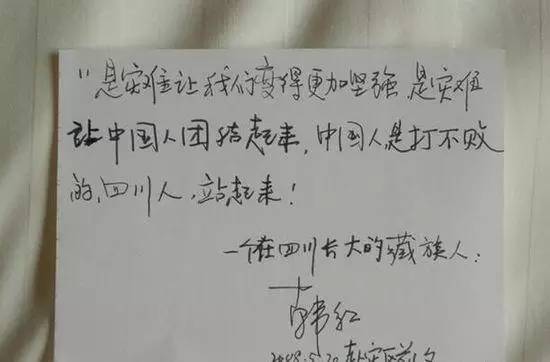 "是灾难让我们变得更加坚强,是灾难
让中国人团结起来,中国人是打不败
的,四川人,站起来!
一个在四川长大的藏族人:
韩红
2008.5.20 赴灾区前夕